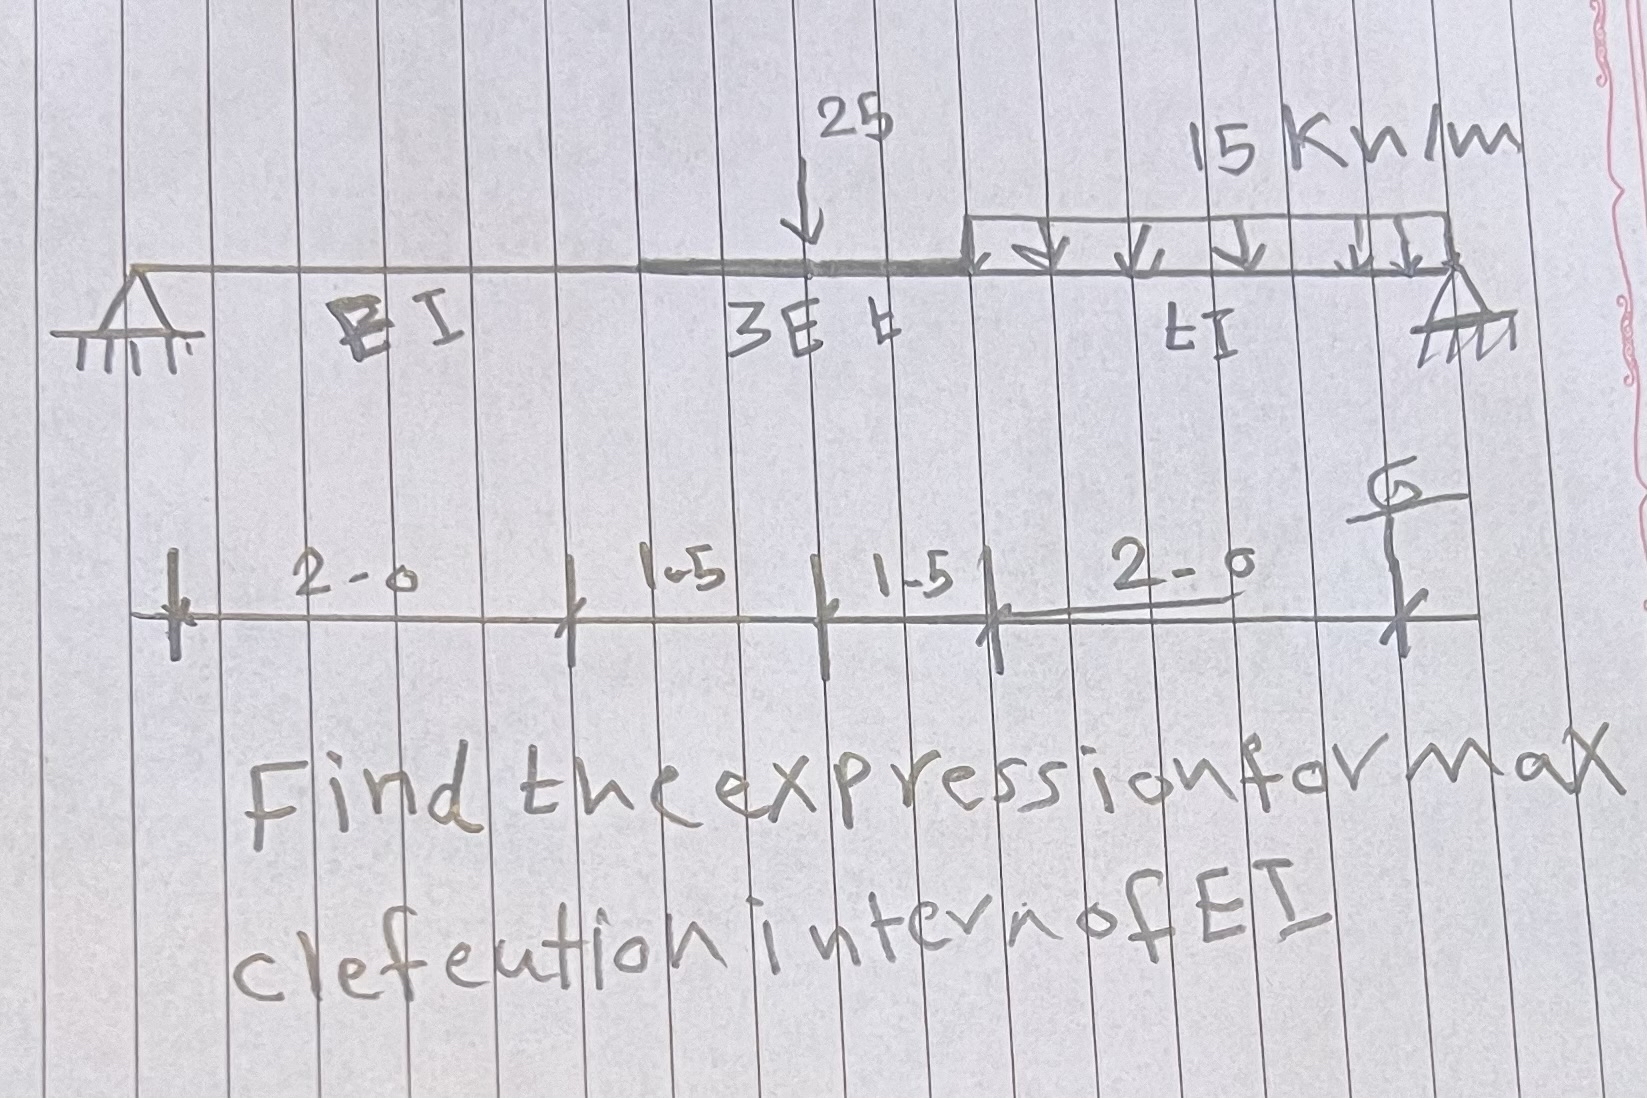 25
15 Kn/m
EI 3E t tI
G
2-0 1-5 1-5 2-0
Find the expression for Max
clefeution intern of EI